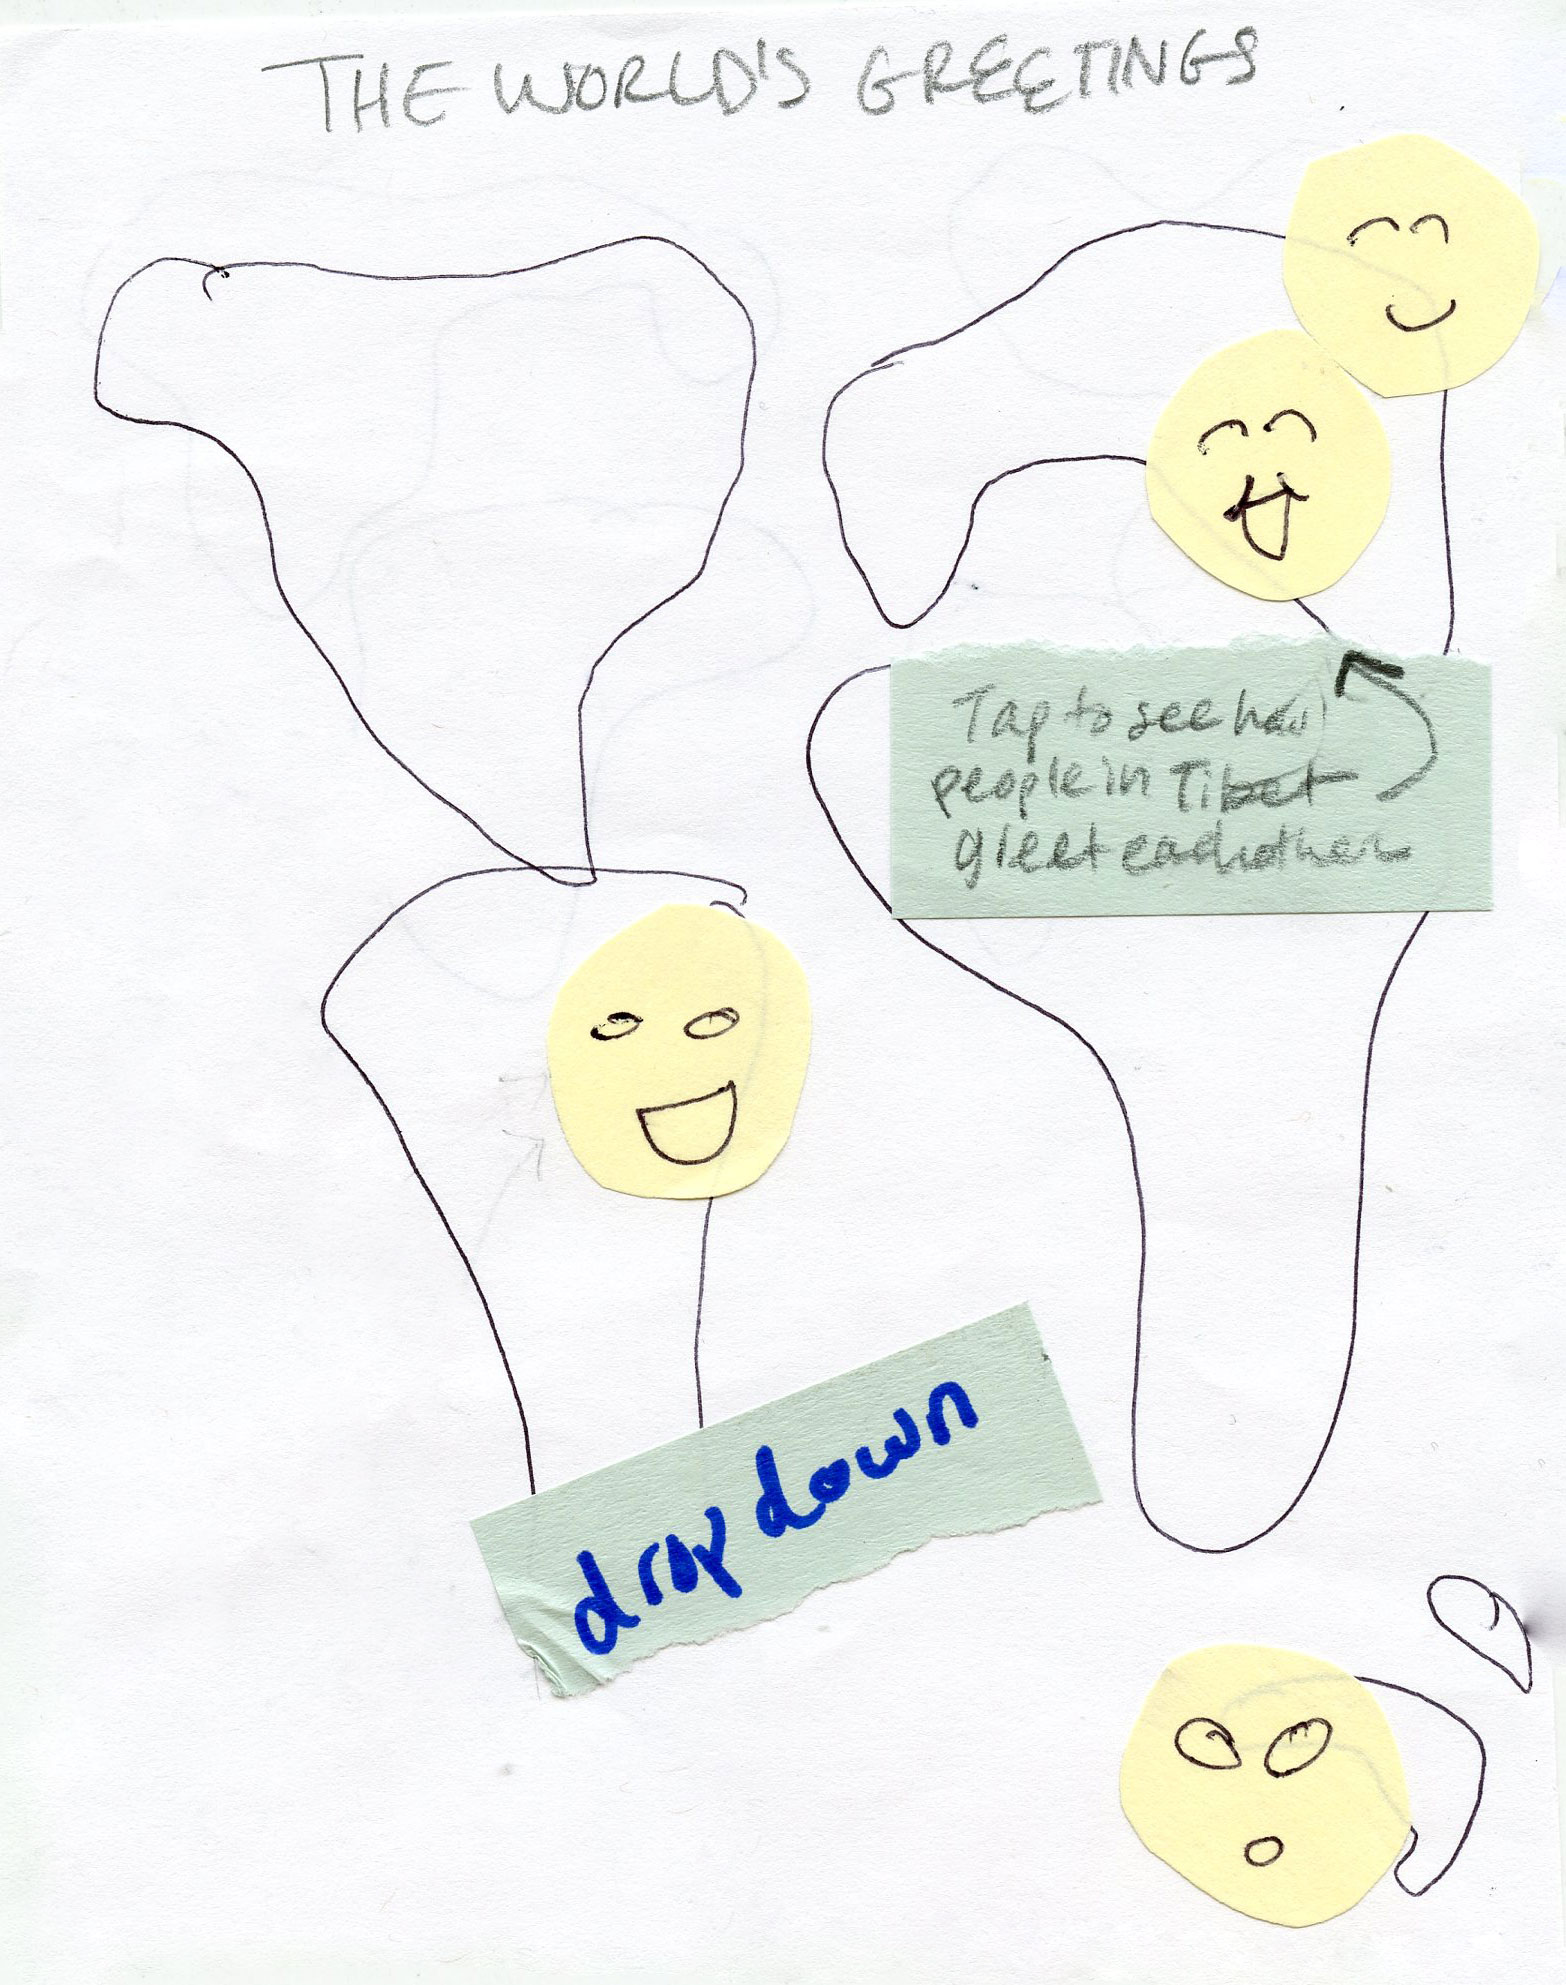 THE WORLD'S GREETINGS
Tap to see how
people in Tibet
greet each other
drop down